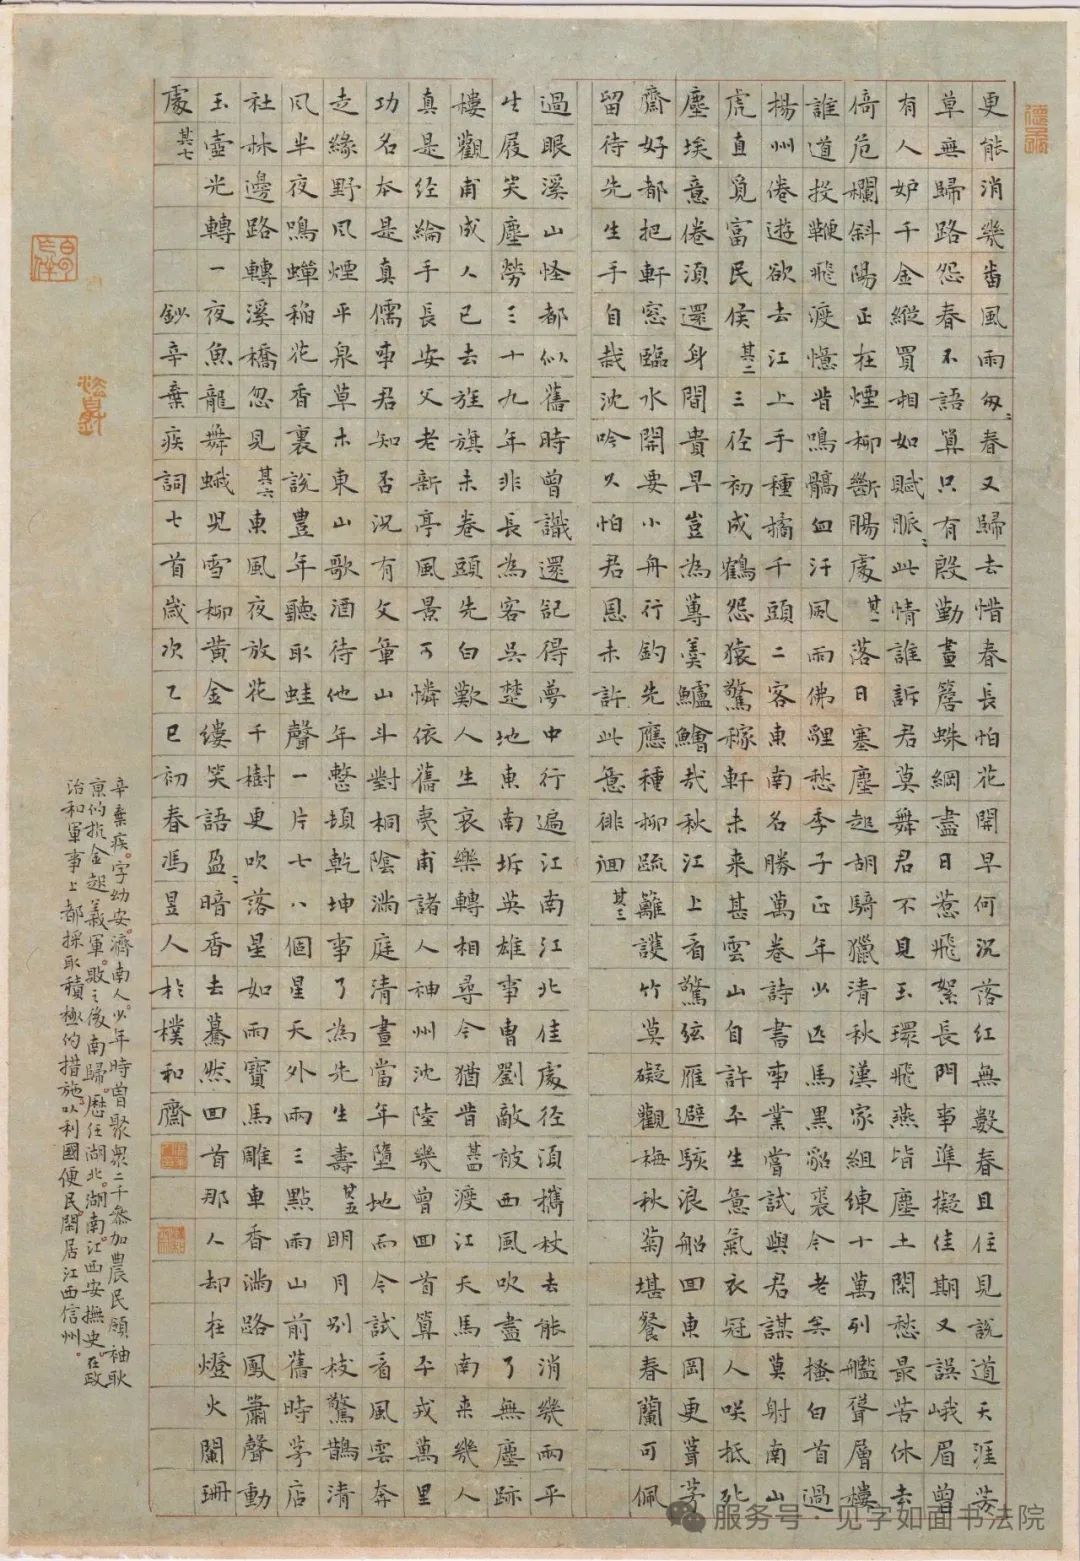 更能消幾番風雨匆〻春又歸去惜春長怕花開早何況落紅無數春且住見說道天涯芳
草無歸路怨春不語算只有殷勤畫簷蛛網盡日惹飛絮長門事準擬佳期又誤峨眉曾
有人妒千金縱買相如賦脈〻此情誰訴君莫舞君不見玉環飛燕皆塵土閑愁最苦休去
倚危欄斜陽正在煙柳斷腸處其一落日塞塵起胡騎獵清秋漢家組練十萬列艦聳層樓
誰道投鞭飛渡憶昔鳴髇血汙風雨佛貍愁季子正年少匹馬黑貂裘今老矣搔白首過
楊州倦遊欲去江上手種橘千頭二客東南名勝萬卷詩書事業嘗試與君謀莫射南山
虎直覓富民侯其二三徑初成鶴怨猿驚稼軒未來甚雲山自許平生意氣衣冠人咲抵死
塵埃意倦須還身閒貴早豈為蓴羹鱸鱠哉秋江上看驚弦雁避駭浪船回東岡更葺茅
齋好都把軒窓臨水開要小舟行釣先應種柳疏籬護竹莫礙觀梅秋菊堪餐春蘭可佩
留待先生手自栽沈吟久怕君恩未許此意徘徊其三
過眼溪山怪都似舊時曾識還記得夢中行遍江南江北佳處徑須攜杖去能消幾兩平
生屐笑塵勞三十九年非長為客吳楚地東南坼英雄事曹劉敵被西風吹盡了無塵跡
樓觀甫成人已去旌旗未卷頭先白歎人生哀樂轉相尋今猶昔其四渡江天馬南來幾人
真是經綸手長安父老新亭風景可憐依舊夷甫諸人神州沈陸幾曾回首算平戎萬里
功名本是真儒事君知否況有文章山斗對桐陰滿庭清晝當年墮地而今試看風雲奔
走綠野風煙平泉草木東山歌酒待他年整頓乾坤事了為先生壽其五明月別枝驚鵲清
風半夜鳴蟬稻花香裏說豐年聽取蛙聲一片七八個星天外兩三點雨山前舊時茅店
社林邊路轉溪橋忽見其六東風夜放花千樹更吹落星如雨寶馬雕車香滿路鳳簫聲動
玉壺光轉一夜魚龍舞蛾兒雪柳黃金縷笑語盈〻暗香去驀然回首那人却在燈火闌珊
處其七
鈔辛棄疾詞七首歲次乙巳初春馮昱人於樸和齋
辛棄疾。字幼安。濟南人。少年時曾聚眾二千參加農民領袖耿
京的抗金起義軍。敗之後南歸。歷任湖北。湖南。江西安撫史。在政
治和軍事上都採取積極的措施。以利國便民。閑居江西信州。
服务号·见字如面书法院